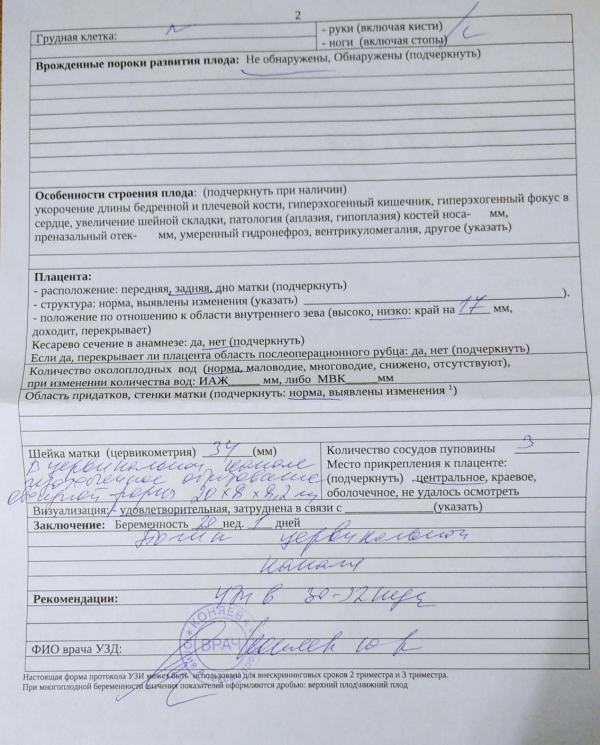 2
Грудная клетка: N
- руки (включая кисти)
- ноги (включая стопы)
Врожденные пороки развития плода: Не обнаружены, Обнаружены (подчеркнуть)
Особенности строения плода: (подчеркнуть при наличии)
укорочение длины бедренной и плечевой кости, гиперэхогенный кишечник, гиперэхогенный фокус в
сердце, увеличение шейной складки, патология (аплазия, гипоплазия) костей носа- мм,
преназальный отек- мм, умеренный гидронефроз, вентрикуломегалия, другое (указать)
Плацента:
- расположение: передняя, задняя, дно матки (подчеркнуть)
- структура: норма, выявлены изменения (указать) ).
- положение по отношению к области внутреннего зева (высоко, низко: край на 17 мм,
доходит, перекрывает)
Кесарево сечение в анамнезе: да, нет (подчеркнуть)
Если да, перекрывает ли плацента область послеоперационного рубца: да, нет (подчеркнуть)
Количество околоплодных вод (норма, маловодие, многоводие, снижено, отсутствуют),
при изменении количества вод: ИАЖ мм, либо МВК мм
Область придатков, стенки матки (подчеркнуть: норма, выявлены изменения 1)
Шейка матки (цервикометрия) 34 (мм)
В цервикальном канале
образование
формы 20x8x8,2 мм
Количество сосудов пуповины 3
Место прикрепления к плаценте:
(подчеркнуть) центральное, краевое,
оболочечное, не удалось осмотреть
Визуализация: удовлетворительная, затруднена в связи с (указать)
Заключение: Беременность 20 нед. 1 дней
Полип цервикального
канала
Рекомендации: УЗИ в 30-32 нед
КОНЯЕВА
ВРАЧ
ФИО врача УЗД:
Настоящая форма протокола УЗИ может быть использована для внескрининговых сроков 2 триместра и 3 триместра.
При многоплодной беременности значения показателей оформляются дробью: верхний плод\нижний плод